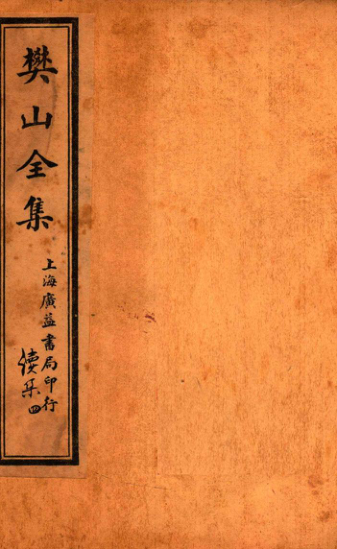 樊山全集
上海廣益書局印行
續集四